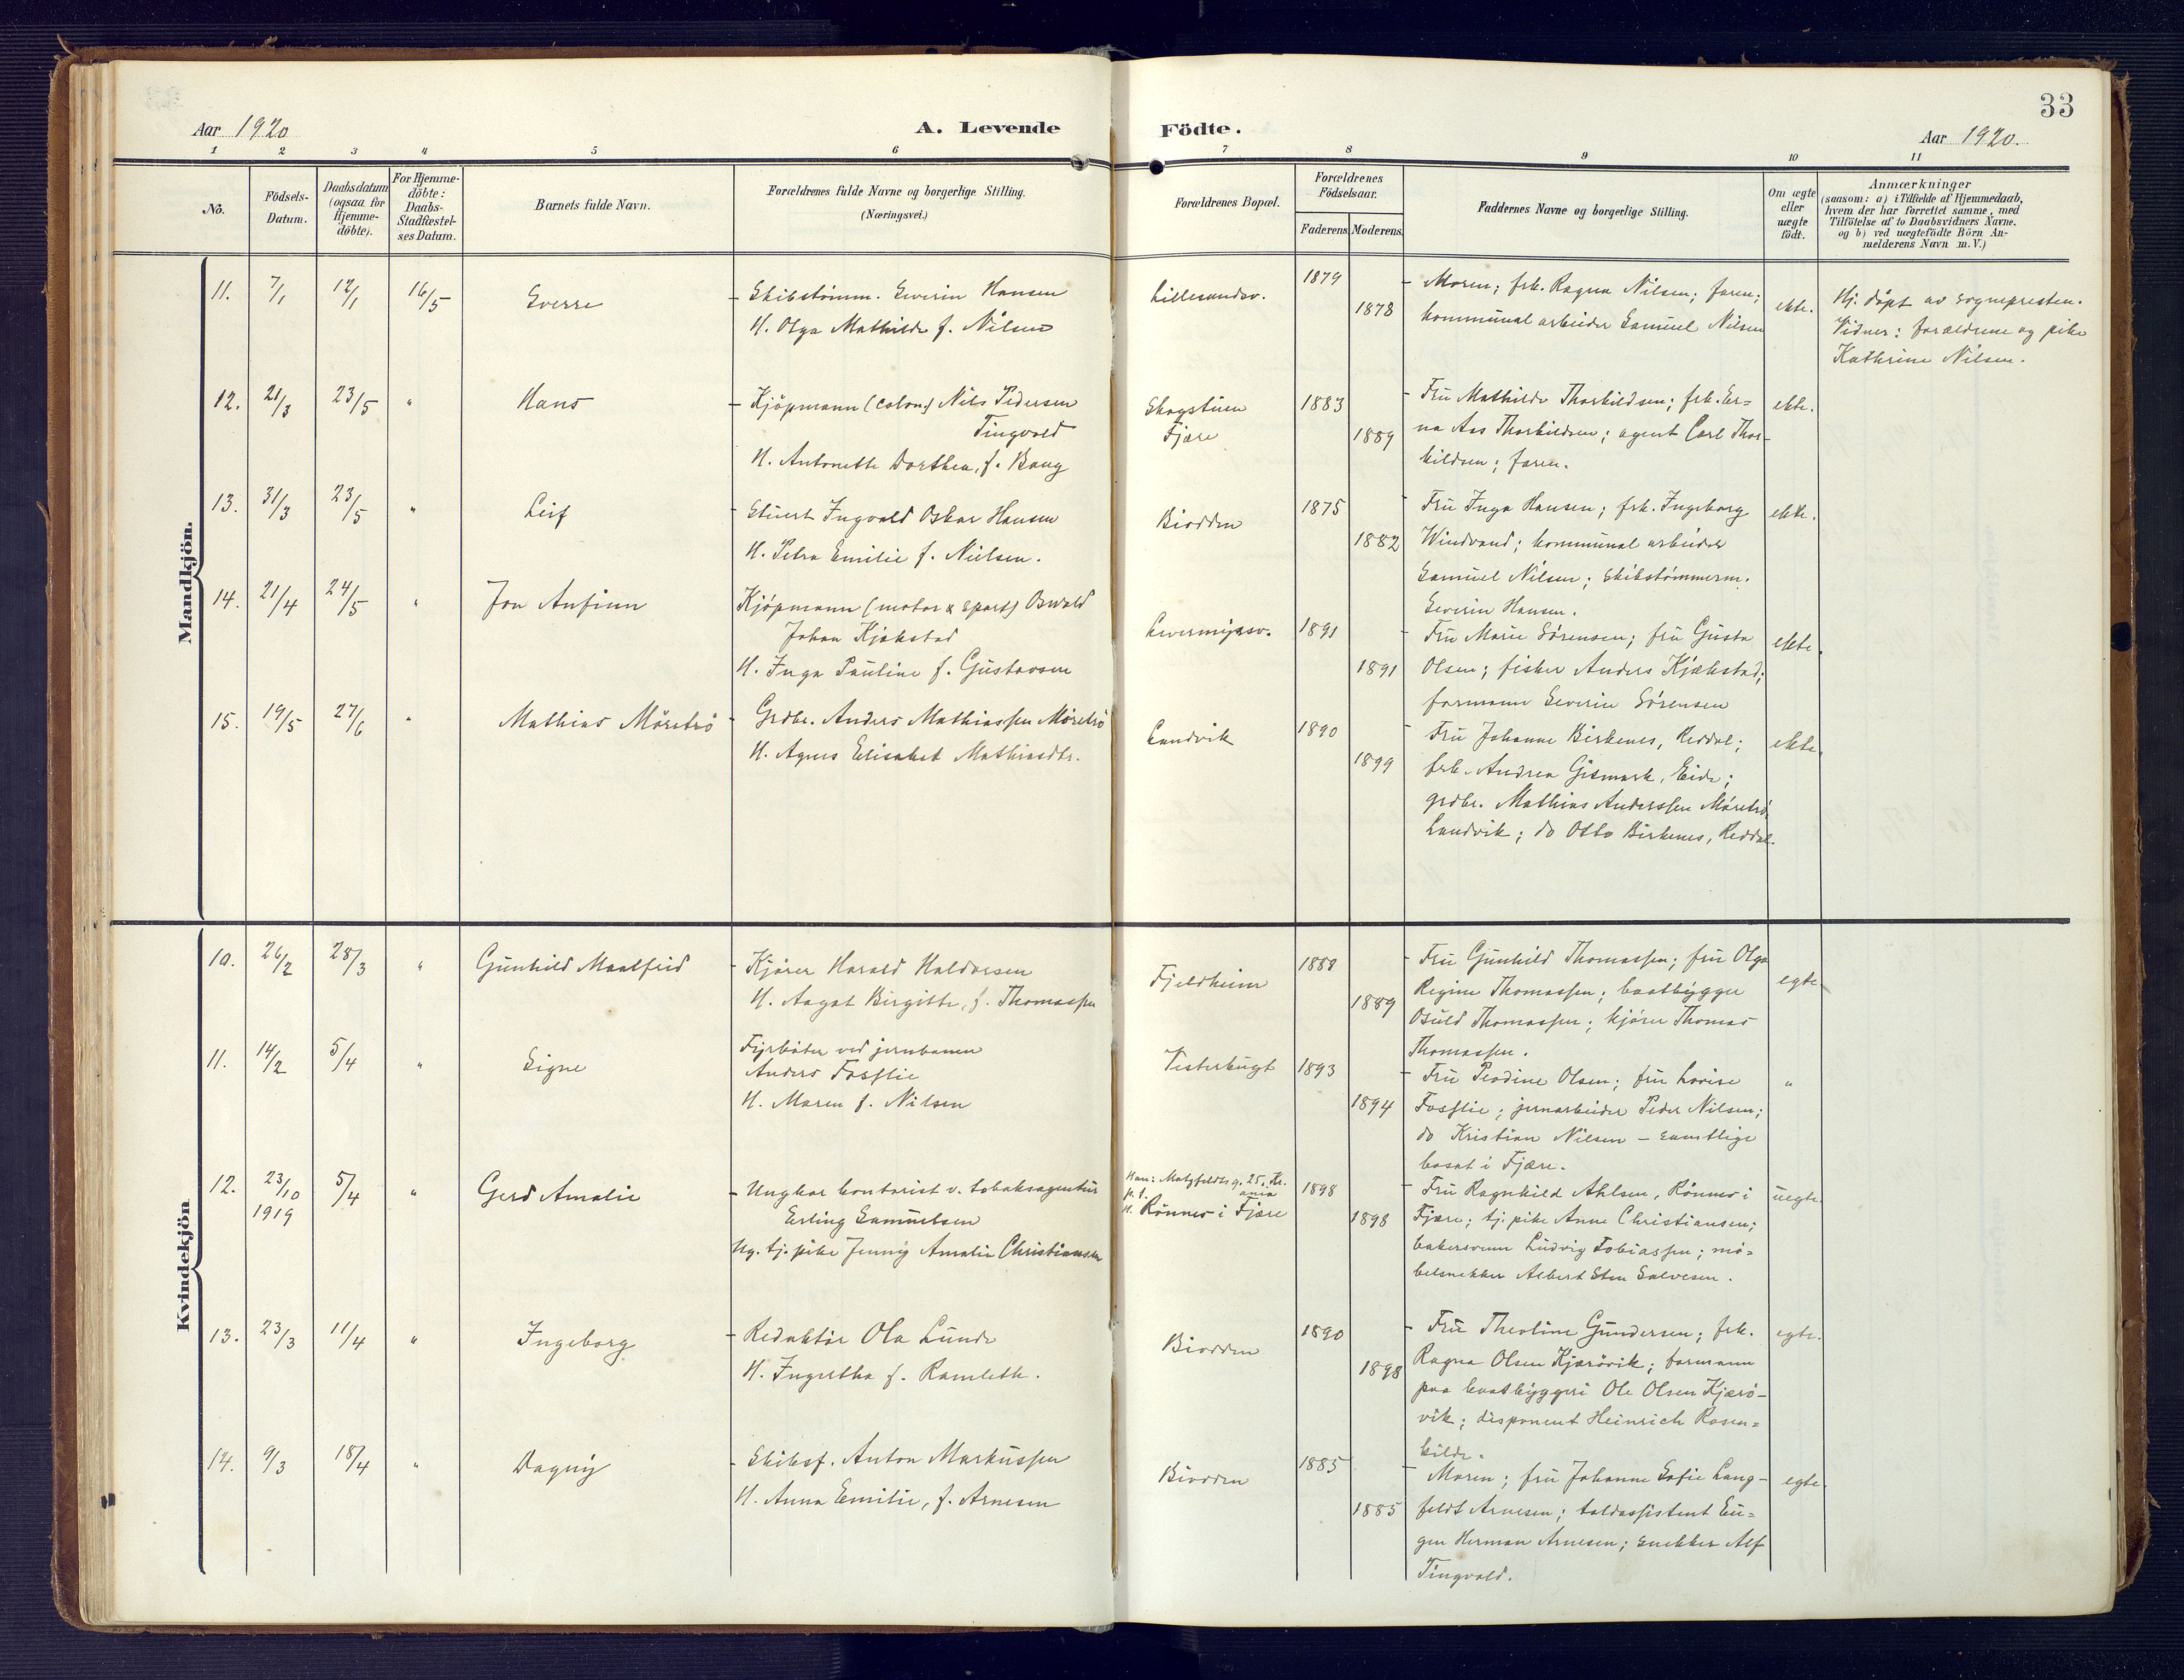 33
Aar 1920
A. Levende Födte.
Aar 1920.
1 2 3 4 5 6 7 8 9 10 11
No.
Födsels-
Datum.
Daabsdatum
(ogsaa for
Hjemme-
döbte).
For Hjemme-
döbte:
Daabs-
Stadfæstel-
ses Datum.
Barnets fulde Navn.
Forældrenes fulde Navne og borgerlige Stilling.
(Næringsvei.)
Forældrenes Bopæl.
Forældrenes
Födselsaar.
Faderens. Moderens.
Faddernes Navne og borgerlige Stilling.
Om ægte
eller
uægte
født.
Anmærkninger
(saasom: a) i Tilfælde af Hjemmedaab,
hvem der har forrettet samme, med
Tilföielse af to Daabsvidners Navne.
og b) ved uægtefödte Börn An-
melderens Navn m. V.)
Mandkjön.
11. 7/1 12/1 16/5 Sverre
- Skibstømm. Severin Hansen
H. Olga Mathilde f. Nilsen
Lillesandsv. 1879
1878
- Moren; frk. Ragna Nilsen; faren;
kommunal arbeider Samuel Nilsen
ekte.
Hj. døpt av sognepresten.
Vidner: forældrene og pike
Kathrine Nilsen.
12. 21/3 23/5 " Hans
- Kjöpmann (colon) Nils Pedersen
Tingvold
H. Antonette Dorthea, f. Baug
Skogstuen
Fjære
1883
1889
- Fru Mathilde Thorkildsen; frk. Er=
na Aas Thorkildsen; agent Carl Thor-
kildsen; faren.
ekte.
13. 31/3 23/5 " Leif
- Stuert Ingvald Oskar Hansen
H. Petra Emilie f. Nielsen.
Biodden 1875
1882
- Fru Inga Hansen; frk. Ingeborg
Windvand; kommunal arbeider
Samuel Nilsen; skibstömmerm.
Severin Hansen.
ekte.
14. 21/4 24/5 " Jon Anfinn
Kjöpmann (motor & sport) Oswald
Johan Kjækstad
H. Inga Pauline f. Gustavsen
Levermyrsv. 1891
1891
- Fru Marie Sörensen; fru Gusta
Olsen; fisker Anders Kjækstad;
formann Severin Sörensen
ekte.
15. 19/5 27/6 " Mathias Möretrö
- Grdbr. Anders Mathiassen Möretrö
H. Agnes Elisabet Mathiasdtr.
Landvik 1890
1899
- Fru Johanne Birkenes, Reddal;
frk. Andrea Gismark, Eide;
grdbr. Mathias Anderssen Möretrö
Landvik; do Otto Birkenes, Reddal.
ekte.
Kvindekjön
10. 26/2 28/3 " Gunhild Maalfrid
- Kjörer Harald Haldorsen
H. Aagot Birgitte, f. Thomassen
Fjeldheim 1888
1889
- Fru Gunhild Thomassen; fru Olga
Regine Thomassen; baatbygger
Osuld Thomassen; kjörer Thomas
Thomassen.
egte
11. 14/2 5/4 " Signe
Fyrböter ved jernbanen
Anders Fosslie
H. Maren f. Nilsen
Vesterbugt 1893
1894
- Fru Peodine Olsen; fru Lovise
Fosslie; jernarbeider Peder Nilsen;
do Kristian Nilsen - samtlige
bosat i Fjære.
"
12. 23/10 1919 5/4 " Gerd Amalie
- Ungkar kontorist v. tobaksagentur
Erling Samuelsen
Ug. tj. pike Jenny Amalie Christiansen
Han: Matzfeldts g. 25. Kr.
p. t. ania
H. Rönnes i Fjære
1898
1898
- Fru Ragnhild Ahlsen, Rönnes i
Fjære; tj. pike Anne Christiansen;
bakersvenn Ludvig Tobiassen; mö=
belsnekker Albert Sten Salvesen.
uegte.
13. 23/3 11/4 " Ingeborg
- Redaktör Ola Lunde
H. Ingertha f. Ramleth.
Biodden 1890
1898
- Fru Theoline Gundersen; frk.
Ragna Olsen Kjærövik; formann
paa baatbyggeri Ole Olsen Kjærö-
vik; disponent Heinrich Rosen=
kilde.
egte.
14. 9/3 18/4 " Dagny
- Skibsf. Anton Markussen
H. Anna Emilie, f. Arnesen
Biodden 1885
1885
- Moren; fru Johanne Sofie Lang-
feldt Arnesen; toldassistent Eu=
gen Herman Arnesen; snekker Alf
Tingvold.
egte.